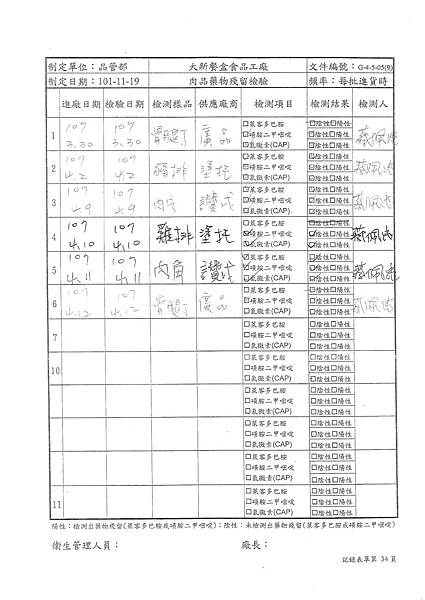 制定單位：品管部 大新餐盒食品工廠 文件編號：G-4-5-05(9)
制定日期：101-11-19 肉品藥物殘留檢驗 頻率：每批進貨時
進廠日期 檢驗日期 檢測樣品 供應廠商 檢測項目 檢測結果 檢測人
1 107 3.30 107 3.30 骨腿丁 廣品 蔡佩
□萊客多巴胺 □陰性□陽性
□磺胺二甲嘧啶 □陰性□陽性
□氯黴素(CAP) □陰性□陽性
2 107 4.2 107 4.2 豬排 塗托 蔡佩
□萊客多巴胺 □陰性□陽性
□磺胺二甲嘧啶 □陰性□陽性
□氯黴素(CAP) □陰性□陽性
3 107 4.9 107 4.9 肉片 讚成 蔡佩
□萊客多巴胺 □陰性□陽性
□磺胺二甲嘧啶 □陰性□陽性
□氯黴素(CAP) □陰性□陽性
4 107 4.10 107 4.10 雞排 塗托 蔡佩
□萊客多巴胺 ☑陰性□陽性
☑磺胺二甲嘧啶 ☑陰性□陽性
☑氯黴素(CAP) ☑陰性□陽性
5 107 4.11 107 4.11 肉角 讚成 蔡佩
☑萊客多巴胺 ☑陰性□陽性
☑磺胺二甲嘧啶 ☑陰性□陽性
□氯黴素(CAP) □陰性□陽性
6 107 4.12 107 4.12 骨腿丁 廣品 蔡佩
□萊客多巴胺 □陰性□陽性
□磺胺二甲嘧啶 □陰性□陽性
□氯黴素(CAP) □陰性□陽性
7
□萊客多巴胺 □陰性□陽性
□磺胺二甲嘧啶 □陰性□陽性
□氯黴素(CAP) □陰性□陽性
10
□萊客多巴胺 □陰性□陽性
□磺胺二甲嘧啶 □陰性□陽性
□氯黴素(CAP) □陰性□陽性
□萊客多巴胺 □陰性□陽性
□磺胺二甲嘧啶 □陰性□陽性
□氯黴素(CAP) □陰性□陽性
□萊客多巴胺 □陰性□陽性
□磺胺二甲嘧啶 □陰性□陽性
□氯黴素(CAP) □陰性□陽性
□萊客多巴胺 □陰性□陽性
□磺胺二甲嘧啶 □陰性□陽性
□氯黴素(CAP) □陰性□陽性
11
□萊客多巴胺 □陰性□陽性
□磺胺二甲嘧啶 □陰性□陽性
□氯黴素(CAP) □陰性□陽性
陽性：檢測出藥物殘留(萊客多巴胺或磺胺二甲嘧啶)；陰性：未檢測出藥物殘留(萊客多巴胺或磺胺二甲嘧啶)
衛生管理人員： 廠長：
記錄表單第 34 頁